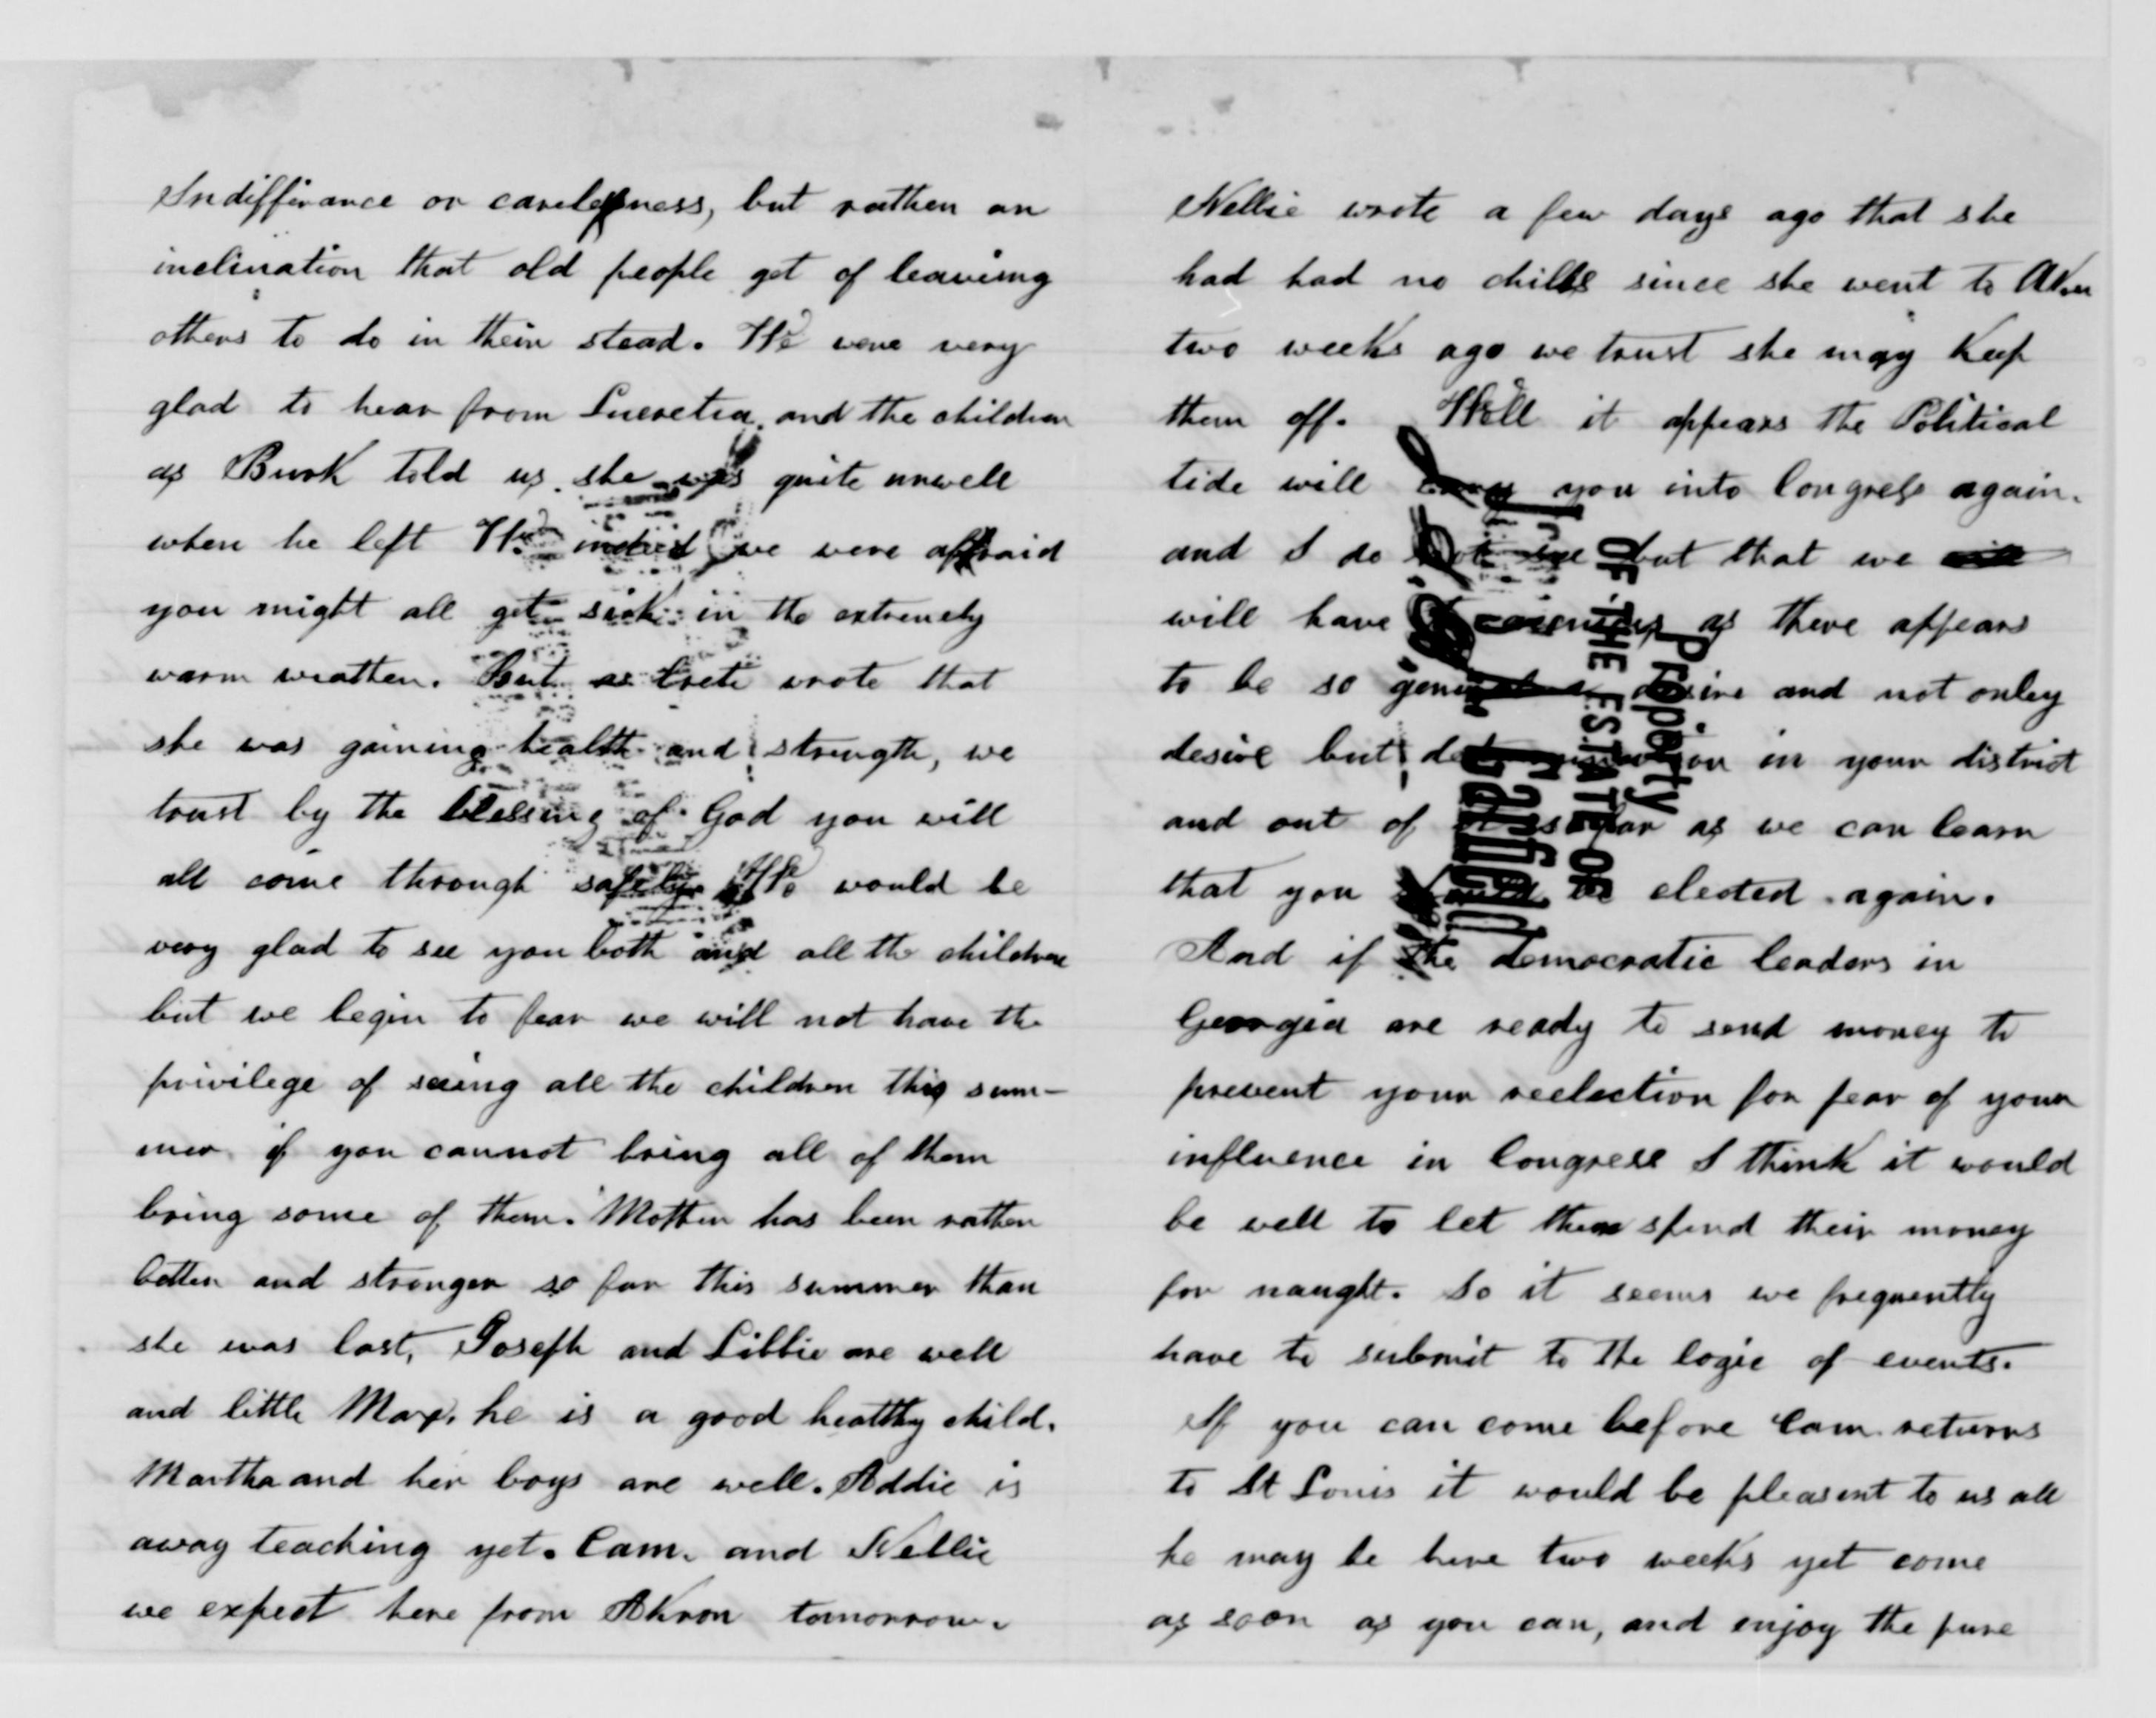 Indifferance or carelessness, but rather an
inclination that old people get of leaveing
others to do in their stead. We were very
glad to hear from Lucretia and the children
as Burk told us she was quite unwell
when he left We indeed we were affraid
you might all get sick in the extremely
warm weather. But as Crete wrote that
she was gaining health and strength, we
trust by the blessing of God you will
all come through safely We would be
very glad to see you both and all the children
but we begin to fear we will not have the
privilege of seeing all the children this sum-
mer. if you cannot bring all of them
bring some of them. Mother has been rather
better and stronger so far this summer than
she was last, Joseph and Libbie are well
and little Max, he is a good healthy child.
Martha and her boys are well. Addie is
away teaching yet. Cam. and Nellie
we expect here from Akron tomorrow.
Nellie wrote a few days ago that she
had had no chills since she went to Akron
two weeks ago we trust she may keep
them off. Well it appears the Political
tide will carry you into Congress again.
and I do not see but that we
will have to as there appears
to be so general a desire and not onley
desire but determination in your district
and out of it so far as we can learn
that you should be elected again.
And if the democratic leaders in
Georgia are ready to send money to
prevent your reelection for fear of your
influence in Congress I think it would
be well to let them spend their money
for naught. So it seems we frequently
have to submit to the logic of events.
If you can come before Cam. returns
to St Louis it would be pleasent to us all
he may be here two weeks yet come
as soon as you can, and enjoy the pure
Property
OF THE ESTATE OF
Garfield